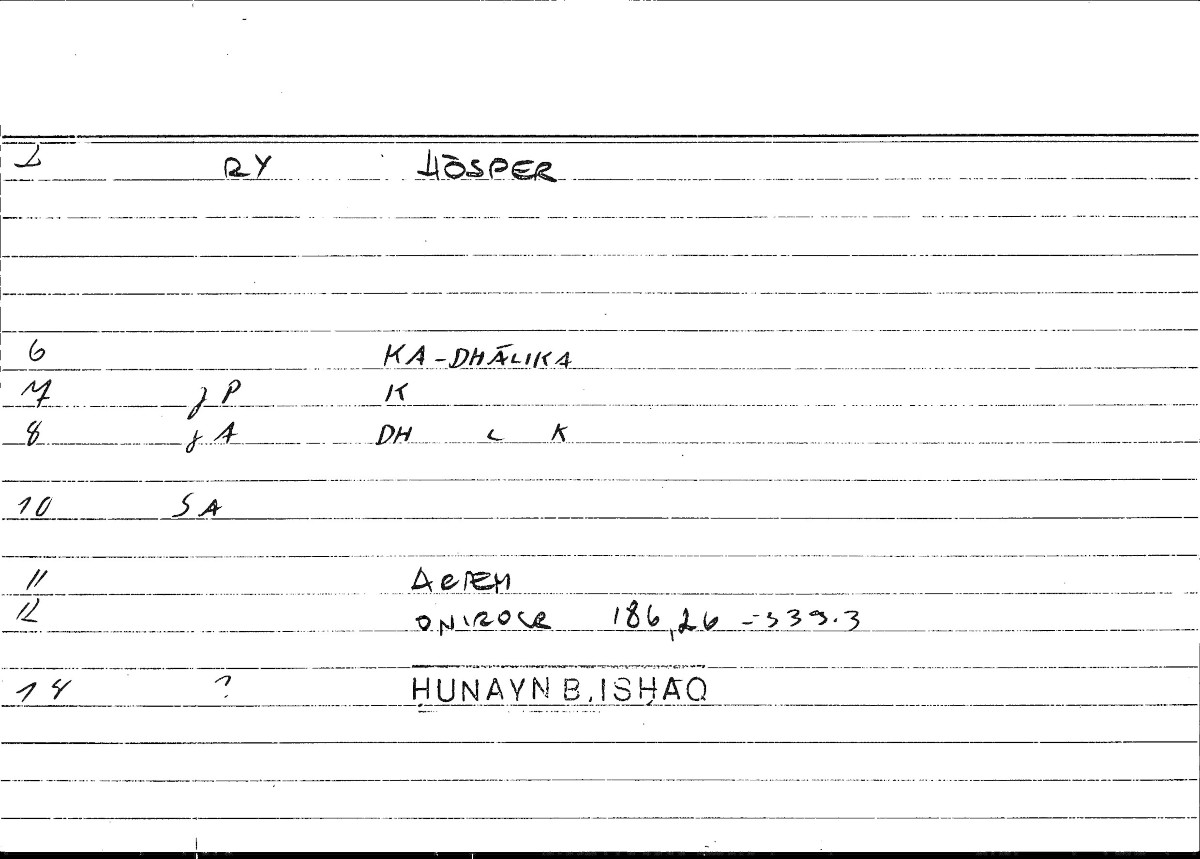 1 RY HŌSPER
6 KA-DHĀLIKA
7 γ P K
8 γ A DH L K
10 SA
11 ARTEM
12 ONIROCR 186,26 = 339.3
14 ? ḤUNAYN B. ISḤĀQ